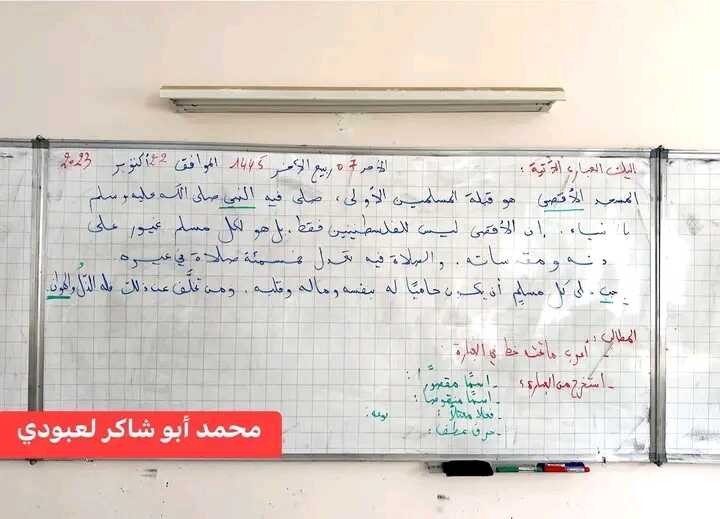 الأحد 07 ربيع الآخر 1445 الموافق 22 أكتوبر 2023
إليك العبارة الآتية:
المسجد الأقصى هو قبلة المسلمين الأولى، صلى فيه النبي صلى الله عليه وسلم
بالأنبياء. إن الأقصى ليس للفلسطينيين فقط. بل هو لكل مسلم غيور على
دينه ومقدساته. والصلاة فيه تعدل خمسمئة صلاة في غيره
يجب على كل مسلم أن يكون حاميًا له بنفسه وماله وقلبه. ومن تخلَّف عن ذلك فله الذلُّ والهوان.
المطالب:
- أعرب ما تحته خط في العبارة
- استخرج من العبارة: - اسمًا مقصورًا:
- اسمًا منقوصا:
- فعلا معتلاً: نوعه:
- حرف عطف:
محمد أبو شاكر لعبودي